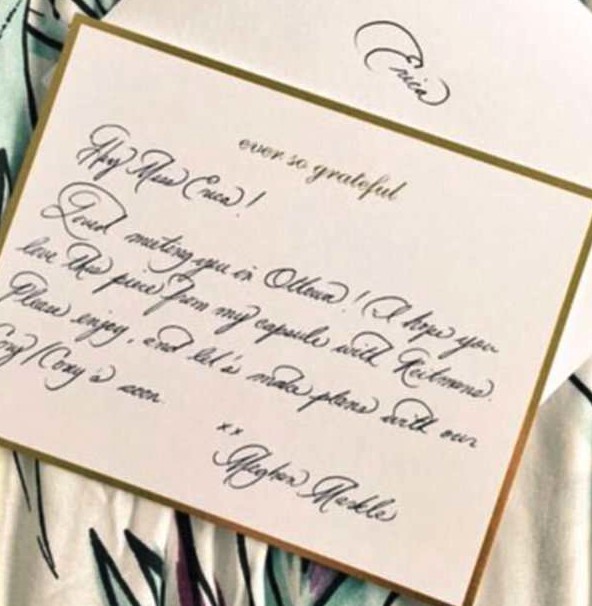 Erica
ever so grateful
Hey Miss Erica!
Loved meeting you in Ottawa! I hope you
love this piece from my capsule with Reitmans.
Please enjoy, and let's make plans with our
/Cory's soon.
xx
Meghan Markle